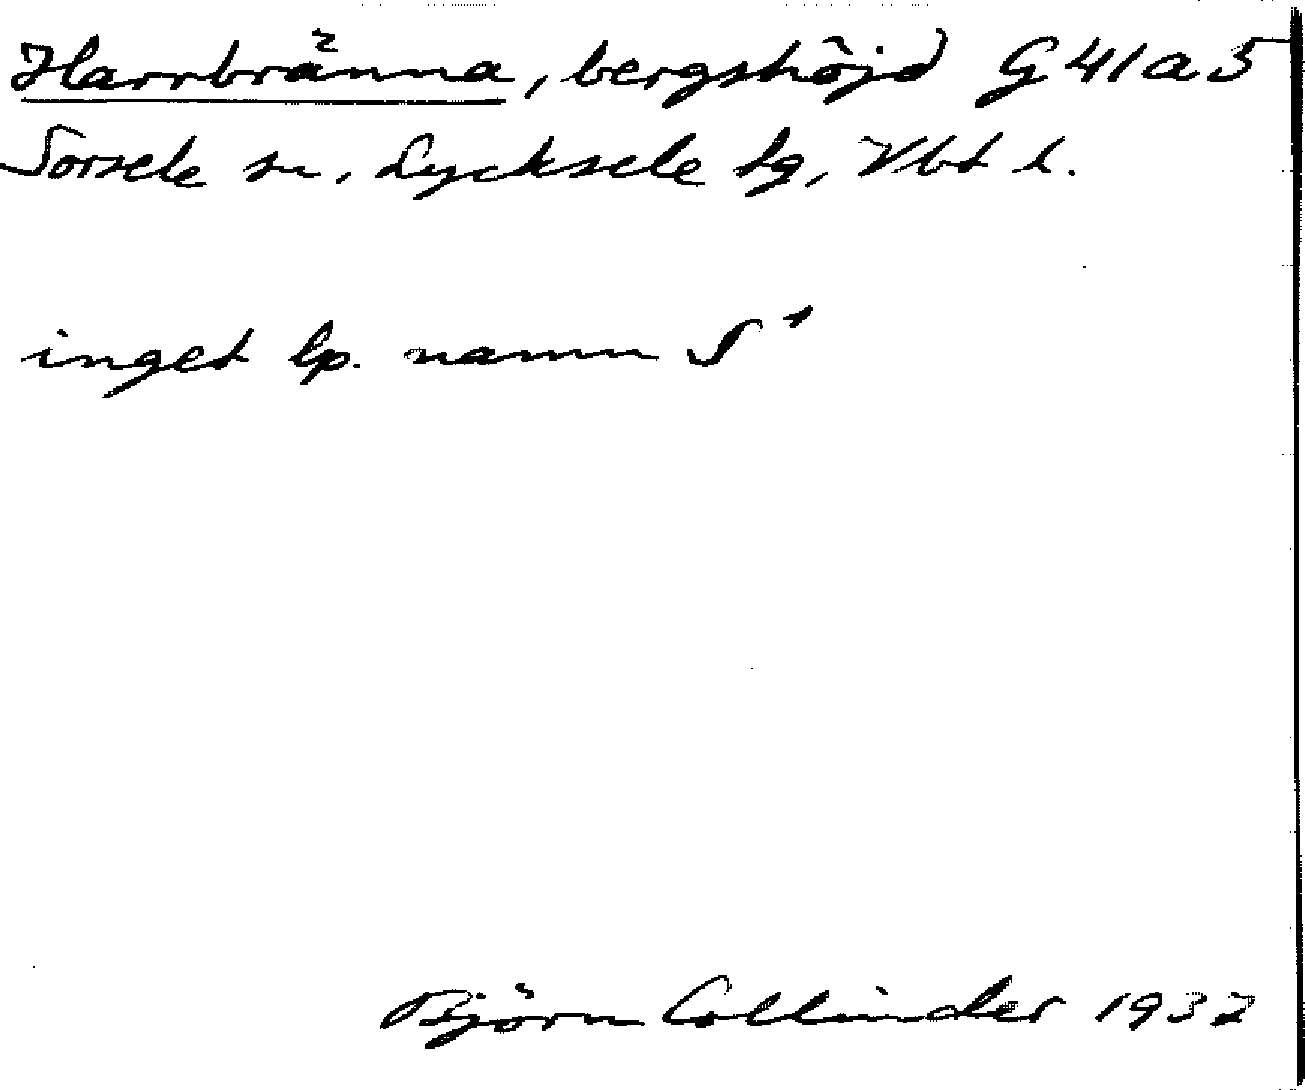 Harrbränna, bergshöjd G 41 a 5
Sorsele sn, Lycksele lg, Vbt l.
inget lp. namn S⁺
Björn Collinder 1932